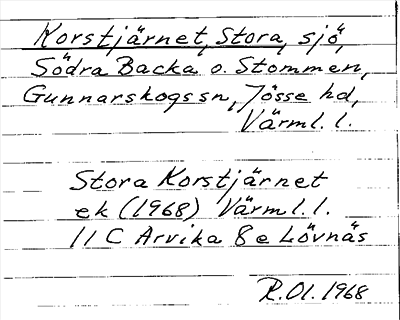 Korstjärnet, Stora, sjö,
Södra Backa o. Stommen,
Gunnarskogs sn, Jösse hd,
Värml. l.
Stora Korstjärnet
ek (1968) Värml. l.
11 C Arvika 8e Lövnäs
R.Ol. 1968